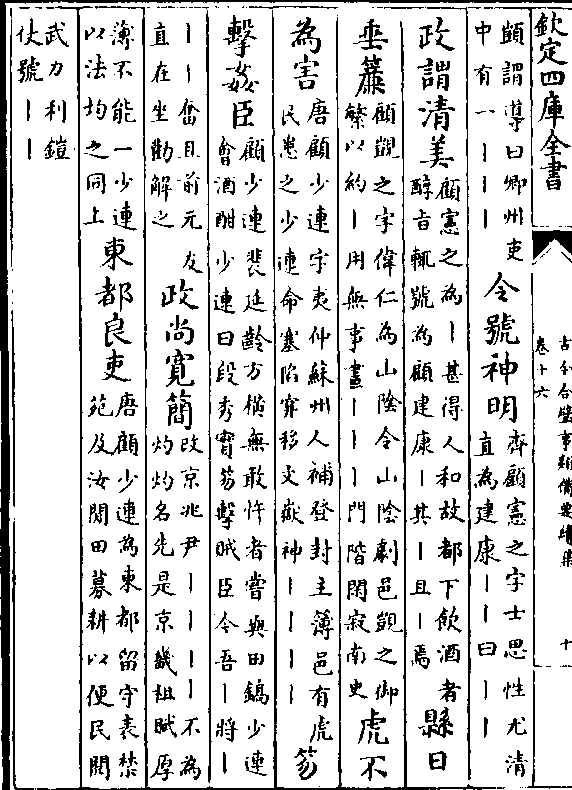 欽定四庫全書
古今合璧事類備要續集
卷十六
十
顧謂導曰卿州吏
中有一丨丨丨
令號神明
齊顧憲之字士思性尤清
直為建康丨丨曰丨丨
政謂清美
顧憲之為丨甚得人和故都下飲酒者
醇旨輒號為顧建康丨其丨且丨焉
縣日
垂簾
顧覬之字偉仁為山陰令山陰劇邑覬之御
繁以約丨用無事晝丨丨丨門階閑寂南史
虎不
為害
唐顧少連字夷仲蘇州人補登封主簿邑有虎
民患之少連命塞陷穽移文嶽神丨丨丨丨
笏
擊姦臣
顧少連裴延齡方橫無敢忤者嘗與田鎬少連
會酒酣少連曰段秀實笏擊賊臣今吾丨將丨
丨丨奮且前元友
直在坐勸解之
政尚寬簡
改京兆尹丨丨丨丨不為
灼灼名先是京畿租賦厚
薄不能一少連
以法均之同上
東都良吏
唐顧少連為東都留守表禁
苑及汝閒田募耕以便民閱
武力利鎧
仗號丨丨